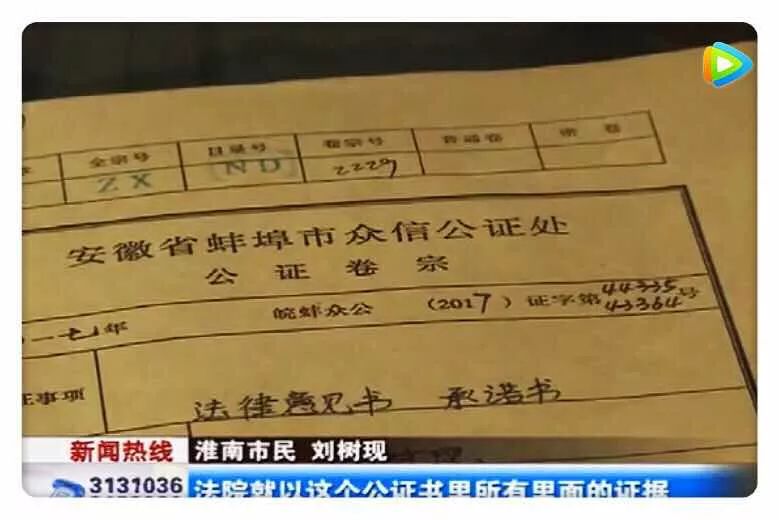 全宗号 目录号 卷宗号 普通卷 密卷
ZX (ND) 2229
安徽省蚌埠市众信公证处
公证卷宗
一七年 皖蚌众公 (2017) 证字第44335 43364号
证事项 法律意见书 承诺书
新闻热线 淮南市民 刘树现
3131036 法院就以这个公证书里所有里面的证据